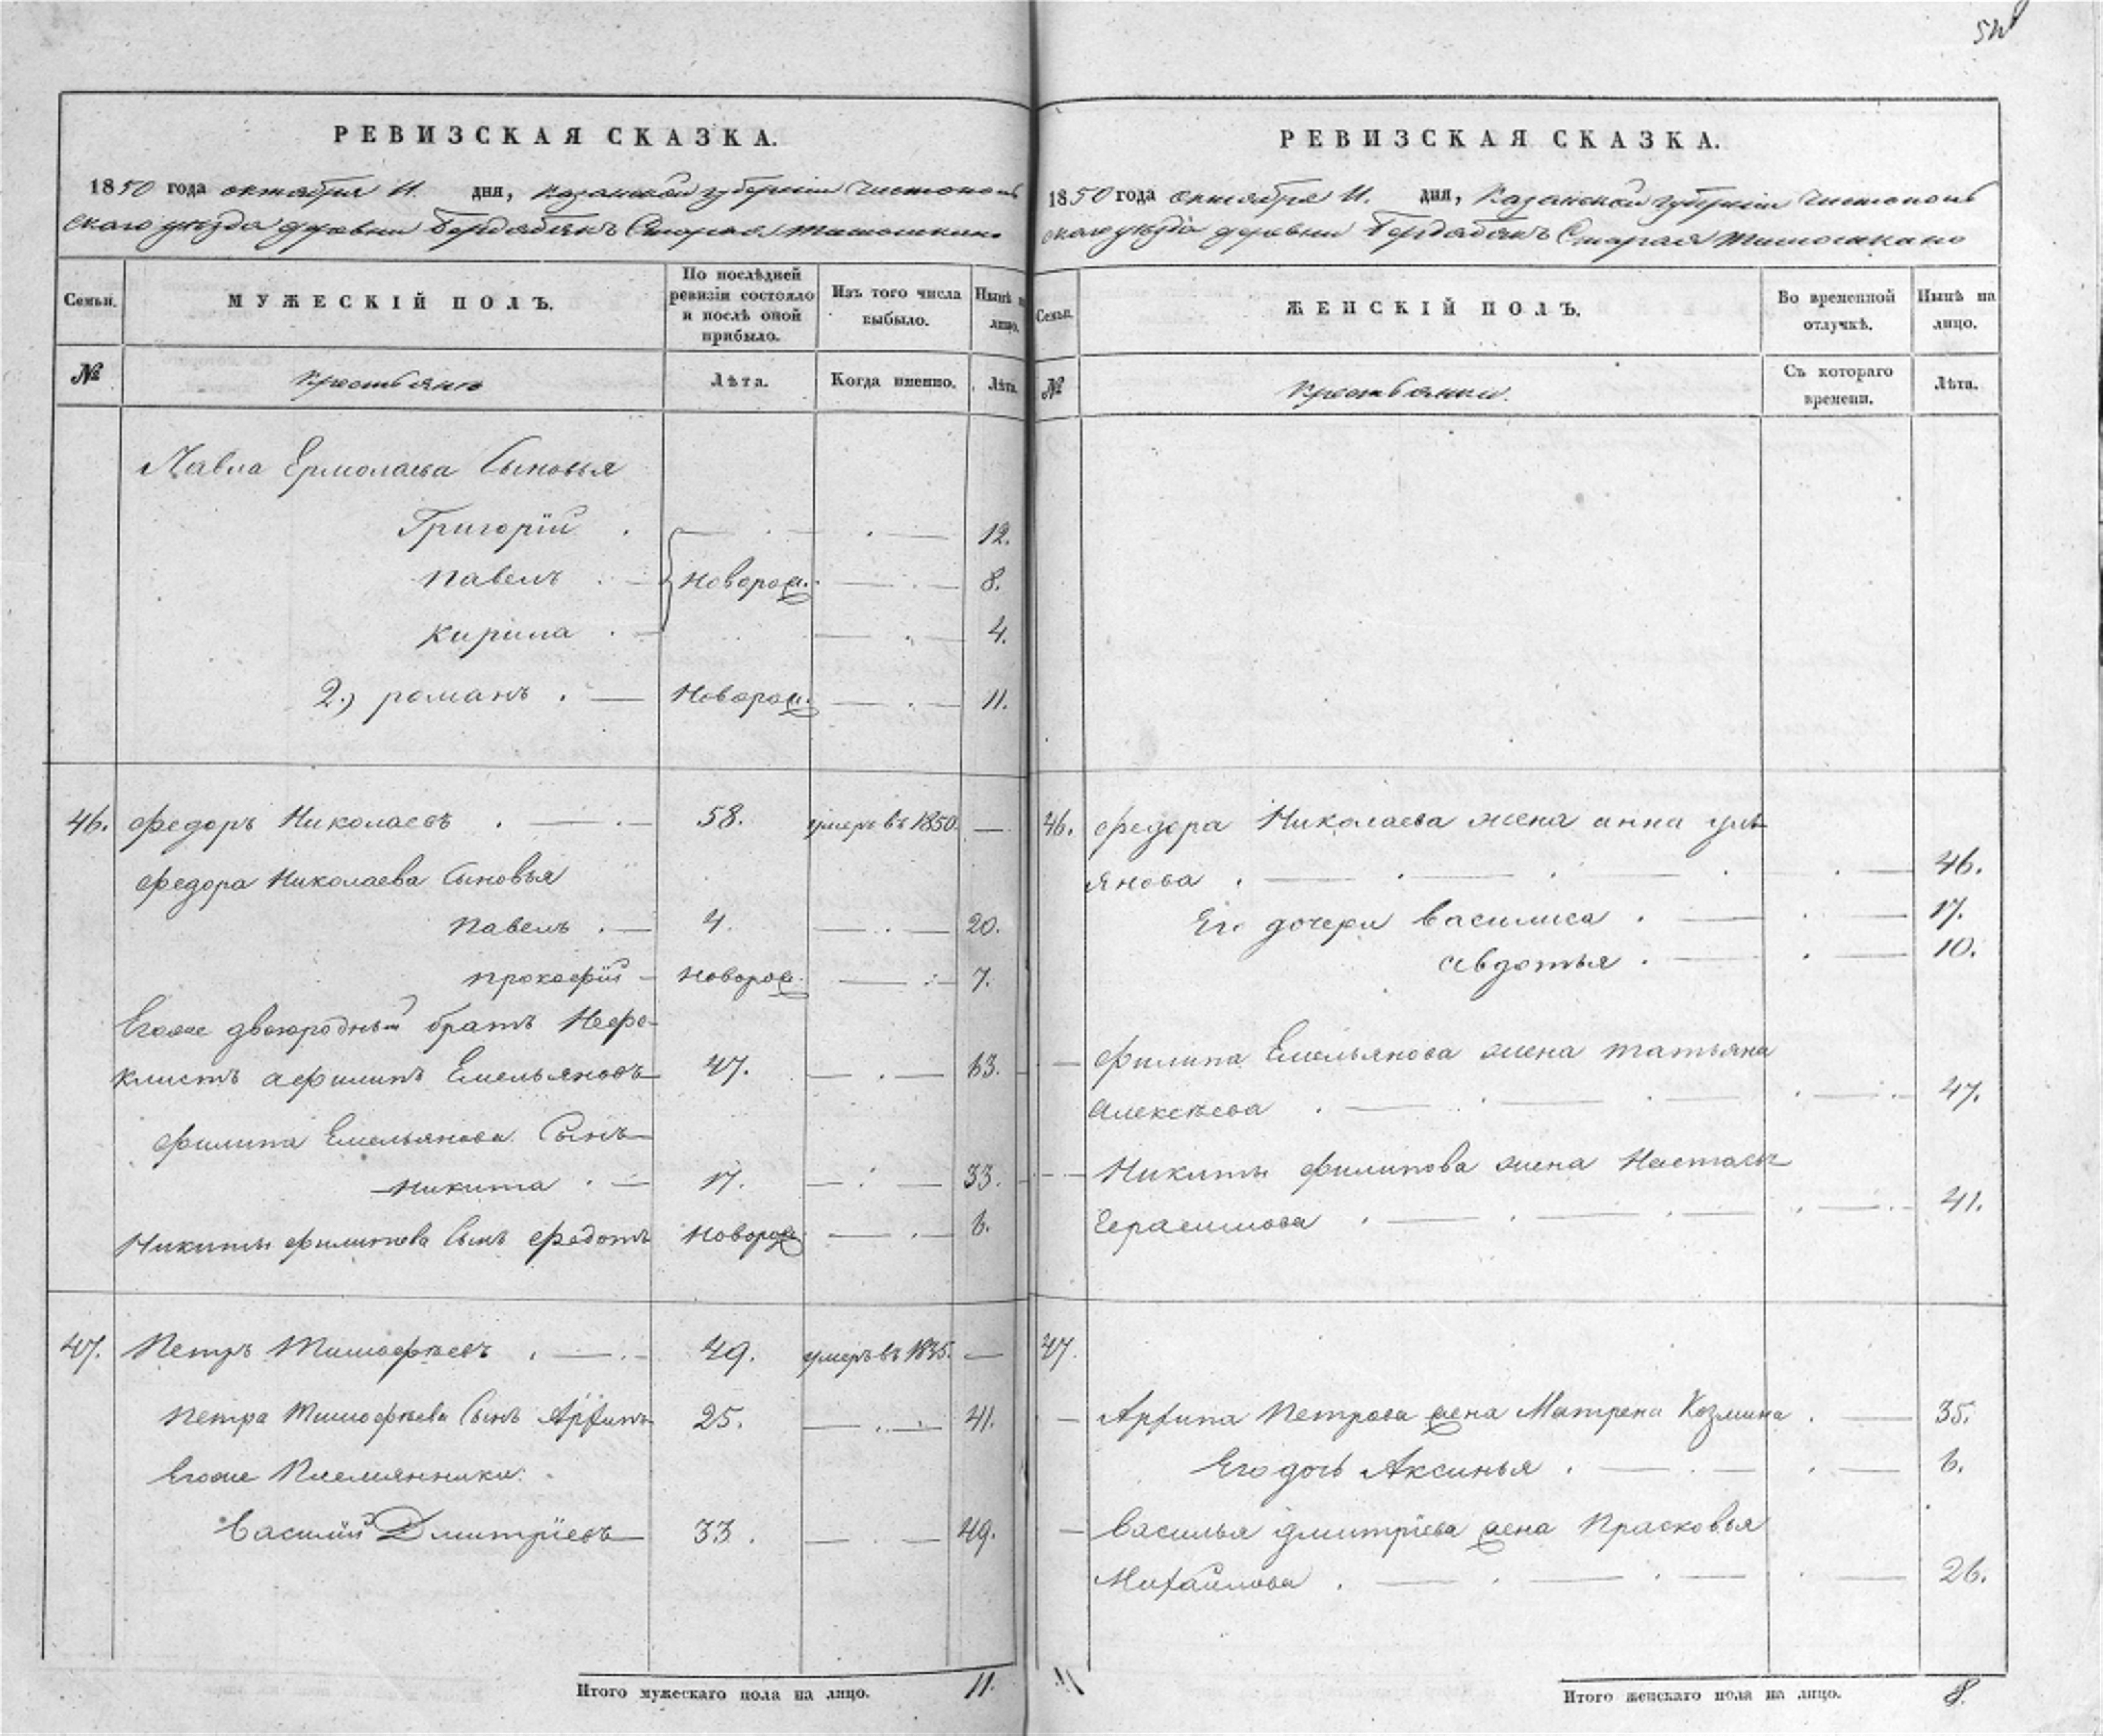 РЕВИЗСКАЯ СКАЗКА.
1850 года октября 11. дня, Казанской губернии Чистополь
скаго уѣзда деревни Старая
Семьи.
МУЖЕСКІЙ ПОЛЪ.
По послѣдней ревизіи состояло и послѣ оной прибыло.
Изъ того числа выбыло.
Нынѣ на лицо.
№
Крестьяне
Лѣта.
Когда именно.
Лѣта.
Павла Ермолаева Сыновья
Григорій . — . — . — 12.
Павелъ . — Новорож. — . — 8.
Кирила . — — . — 4.
2.) романъ . — Новорож. — . — 11.
46. Федоръ Николаевъ . — . — 58. умеръ въ 1850. —
Федора Николаева Сыновья
Павелъ . — 4. — . — 20.
Прокофій — Новорож. — . — 7.
Егоже двоюродный братъ Неофи-
клистъ афилипъ Емельяновъ 47. — . — 63.
Филипа Емельянова Сынъ
Никита . — 17. — . — 33.
Никиты Филипова Сынъ Федотъ Новорож. — . — 6.
47. Петръ Тимофѣевъ . — . — 49. умеръ въ 1835. —
Петра Тимофѣева Сынъ Архипъ 25. — . . — 41.
Егоже Племянники.
Василій Дмитріевъ 33. — . — 49.
Итого мужескаго пола на лицо. 11.
РЕВИЗСКАЯ СКАЗКА.
1850 года октября 11. дня, Казанской губерніи Чистополь
скаго уѣзда деревни Старая
Семьи.
ЖЕНСКІЙ ПОЛЪ.
Во временной отлучкѣ.
Нынѣ на лицо.
№
Крестьянки.
Съ котораго времени.
Лѣта.
46. Федора Николаева жена анна уль
янова . — . — . — . . — 46.
Его дочери Василиса . — . — 17.
авдотья . — . — 10.
— Филипа Емельянова жена татьяна
Алексѣева . — . — . — . — 47.
— Никиты Филипова жена Настась
Герасимова . — . — . — . — 41.
47.
— Архипа Петрова жена Матрена Козмина . — 35.
Его дочь Аксинья . — . — . — 6.
— Василья Дмитріева жена Прасковья
Михайлова . — . — . — . — 26.
Итого женскаго пола на лицо. 8.